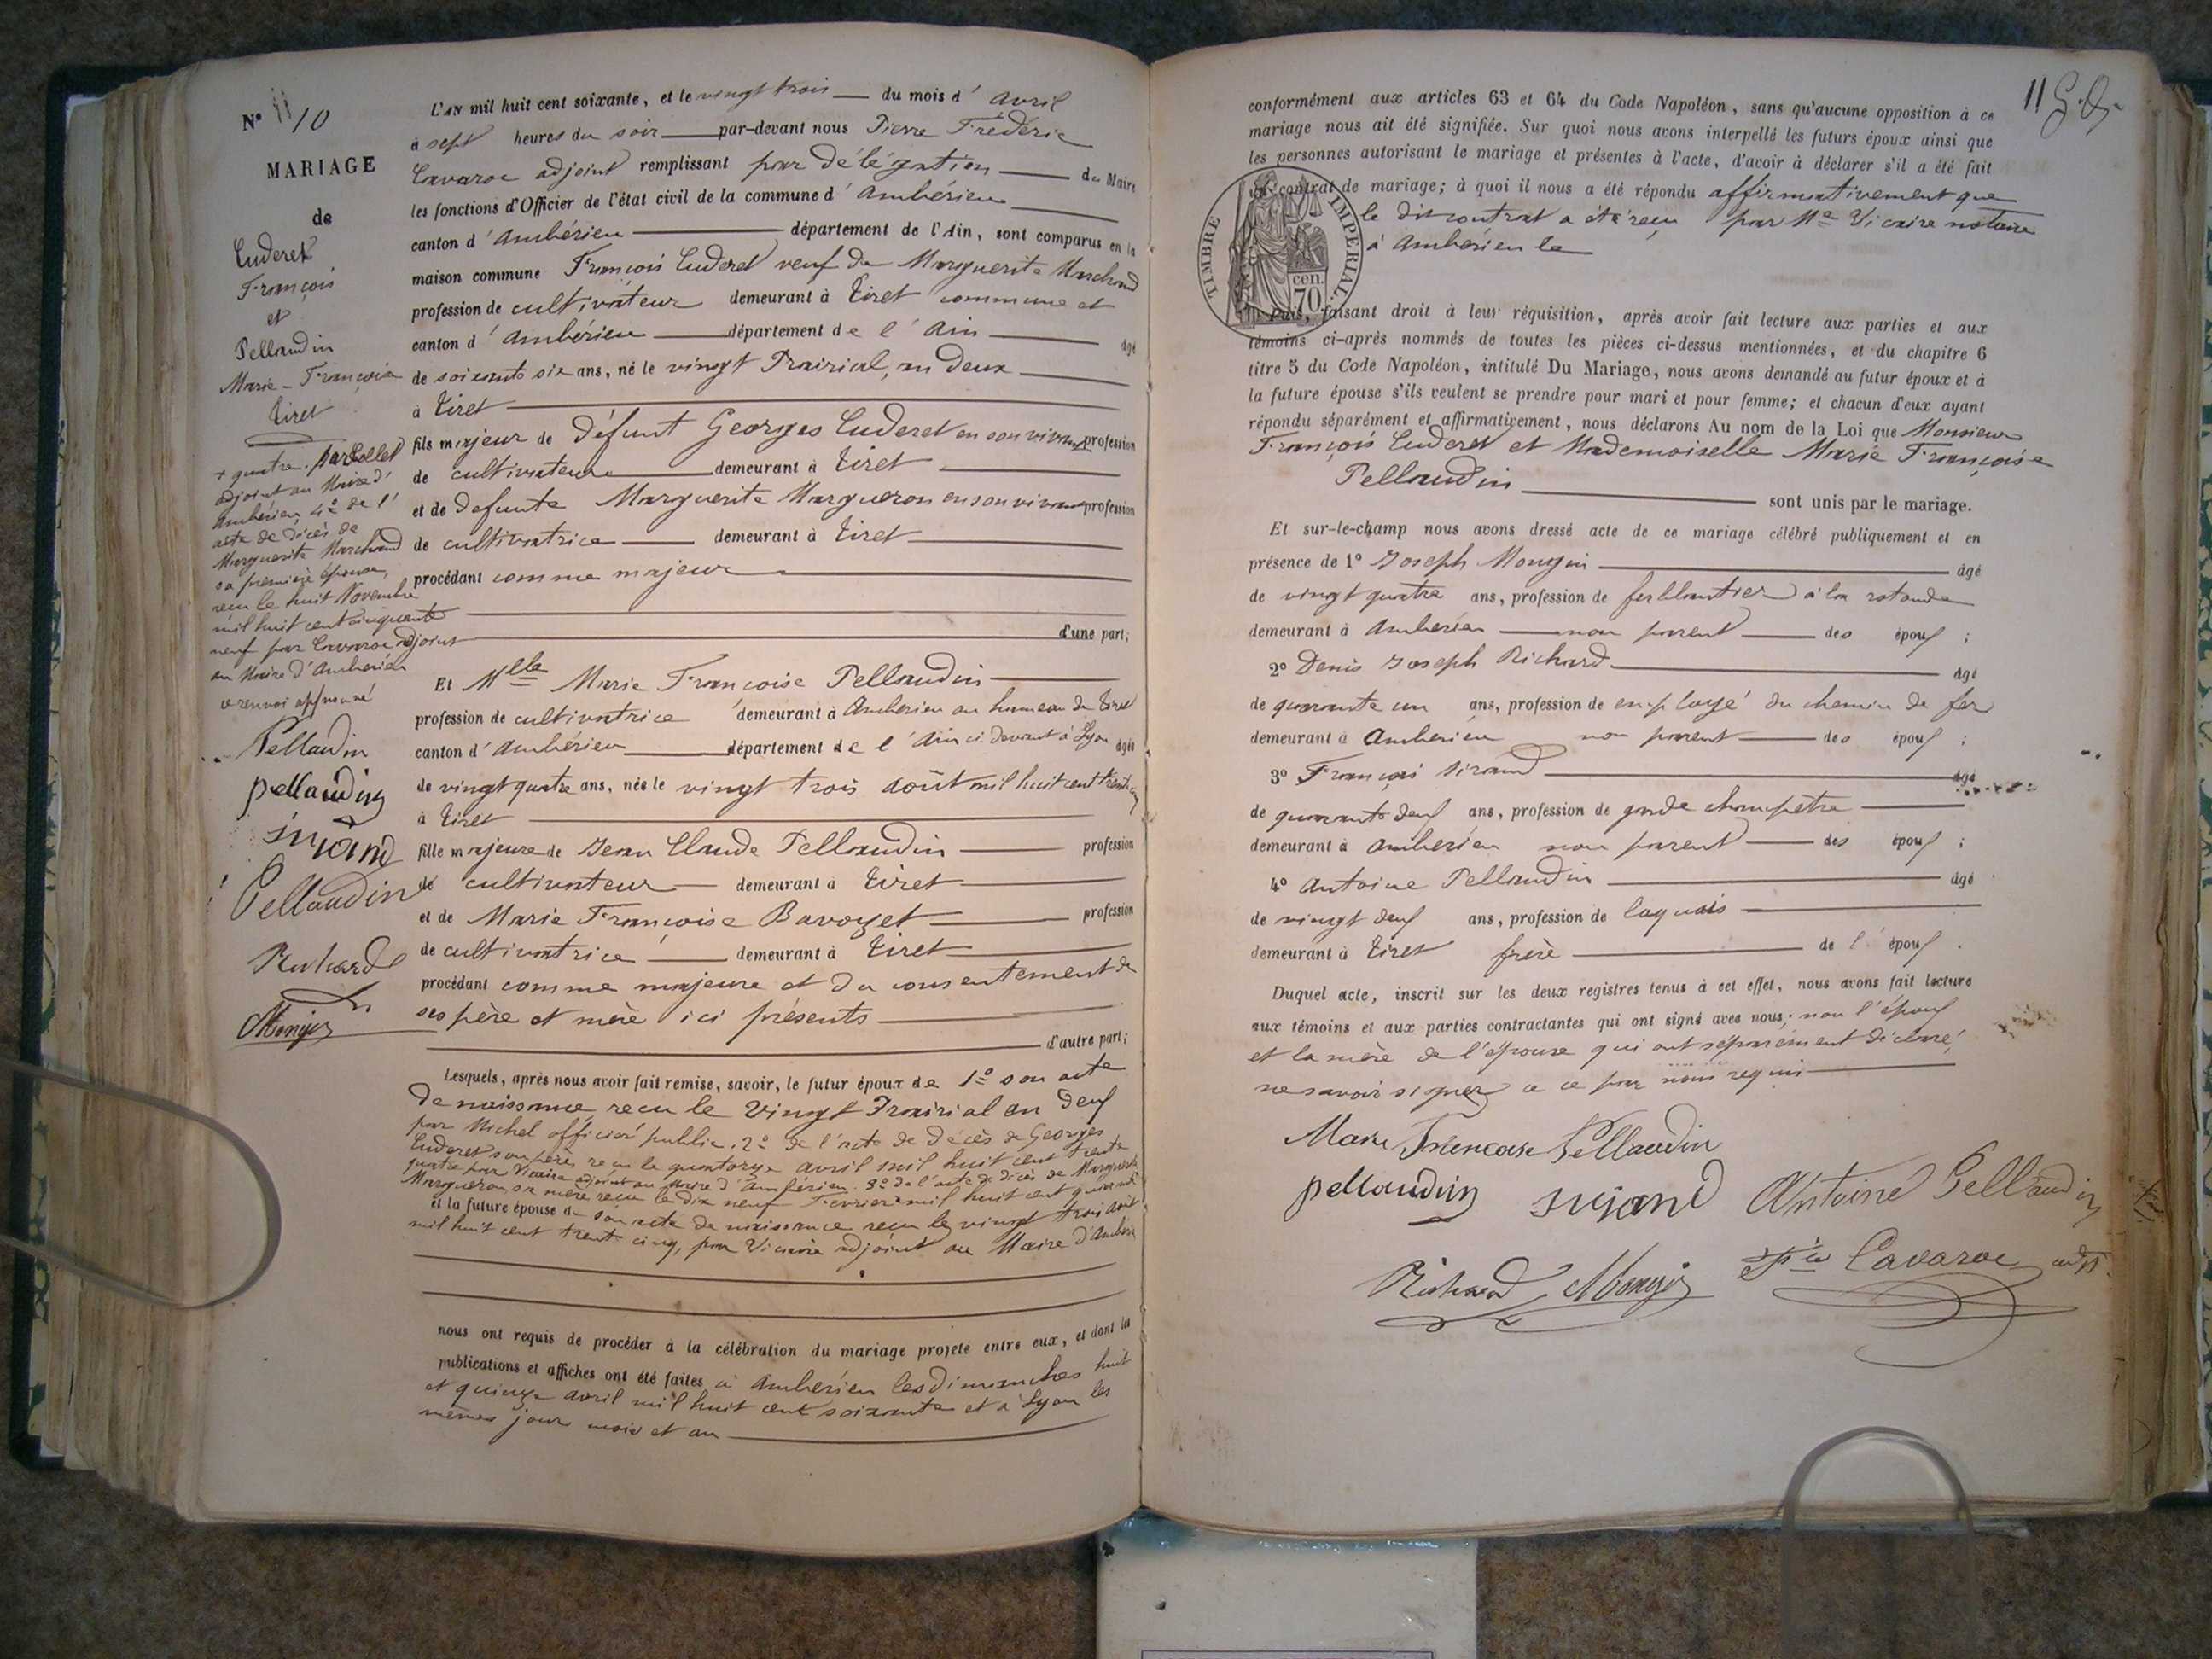 N° 10
MARIAGE
de
Cuderet
François
et
Pellaudin
Marie-Françoise
Tiret
+ quatre.
adjoint au Maire d'
Ambérieu, 4° de l'
acte de décès de
Marguerite Marchand
sa première épouse,
reçu le huit Novembre
mil huit cent cinquante
neuf par Cavaroc adjoint
au Maire d'Ambérieu
ce renvoi approuvé
Pellaudin
pellaudin
sirand
Pellaudin
Richard
Mongin
L'AN mil huit cent soixante, et le vingt trois du mois d'avril
à sept heures du soir par-devant nous Pierre Frédéric
Cavaroc adjoint remplissant par délégation du Maire
les fonctions d'Officier de l'état civil de la commune d'Ambérieu
canton d'Ambérieu département de l'Ain, sont comparus en la
maison commune François Cuderet veuf de Marguerite Marchand
profession de cultivateur demeurant à Tiret commune et
canton d'Ambérieu département de l'Ain âgé
de soixante six ans, né le vingt Prairial, an deux
à Tiret
fils majeur de défunt Georges Cuderet en son vivant profession
de cultivateur demeurant à Tiret
et de defunte Marguerite Margueron en son vivant profession
de cultivatrice demeurant à Tiret
procédant comme majeur
d'une part;
Et Mlle Marie Françoise Pellaudin
profession de cultivatrice demeurant à Ambérieu au hameau de Tiret
canton d'Ambérieu département de l'Ain ci-devant à Lyon âgée
de vingt quatre ans, née le vingt trois août mil huit cent trente cinq
à Tiret
fille majeure de Jean Claude Pellaudin profession
de cultivateur demeurant à Tiret
et de Marie Françoise Bavozet profession
de cultivatrice demeurant à Tiret
procédant comme majeure et du consentement de
ses père et mère ici présents
d'autre part;
Lesquels, après nous avoir fait remise, savoir, le futur époux de 1° son acte
de naissance reçu le vingt Prairial an deux
par Michel officier public. 2° de l'acte de décès de Georges
Cuderet son père, reçu le quatorze avril mil huit cent trente
quatre par Vicaire adjoint au Maire d'Ambérieu. 3° de l'acte de décès de Marguerite
Margueron sa mère reçu le dix neuf Février mil huit cent quarante
et la future épouse de son acte de naissance reçu le vingt trois août
mil huit cent trente cinq, par Vicaire adjoint au Maire d'Ambérieu
nous ont requis de procéder à la célébration du mariage projeté entre eux, et dont les
publications et affiches ont été faites à Ambérieu les Dimanches huit
et quinze avril mil huit cent soixante et à Lyon les
mêmes jour mois et an
11
conformément aux articles 63 et 64 du Code Napoléon, sans qu'aucune opposition à ce
mariage nous ait été signifiée. Sur quoi nous avons interpellé les futurs époux ainsi que
les personnes autorisant le mariage et présentes à l'acte, d'avoir à déclarer s'il a été fait
un contrat de mariage; à quoi il nous a été répondu affirmativement que
le dit contrat a été reçu par Me Vicaire notaire
à Ambérieu le
TIMBRE IMPERIAL.
cen.
70
Puis, faisant droit à leur réquisition, après avoir fait lecture aux parties et aux
témoins ci-après nommés de toutes les pièces ci-dessus mentionnées, et du chapitre 6
titre 5 du Code Napoléon, intitulé Du Mariage, nous avons demandé au futur époux et à
la future épouse s'ils veulent se prendre pour mari et pour femme; et chacun d'eux ayant
répondu séparément et affirmativement, nous déclarons Au nom de la Loi que Monsieur
François Cuderet et Mademoiselle Marie Françoise
Pellaudin sont unis par le mariage.
Et sur-le-champ nous avons dressé acte de ce mariage célébré publiquement et en
présence de 1° Joseph Mongin âgé
de vingt quatre ans, profession de ferblantier à la rotonde
demeurant à Ambérieu non parent des époux;
2° Denis Joseph Richard âgé
de quarante un ans, profession de employé du chemin de fer
demeurant à Ambérieu non parent des époux;
3° François Sirand âgé
de quarante deux ans, profession de garde champêtre
demeurant à Ambérieu non parent des époux;
4° Antoine Pellaudin âgé
de vingt deux ans, profession de laquais
demeurant à Tiret frère de l'épouse.
Duquel acte, inscrit sur les deux registres tenus à cet effet, nous avons fait lecture
aux témoins et aux parties contractantes qui ont signé avec nous; non l'époux
et la mère de l'épouse qui ont séparément déclaré,
ne savoir signer à ce par nous requis
Marie Francoise Pellaudin
pellaudin sirand Antoine Pellaudin
Richard Mongin Cavaroc adjt.